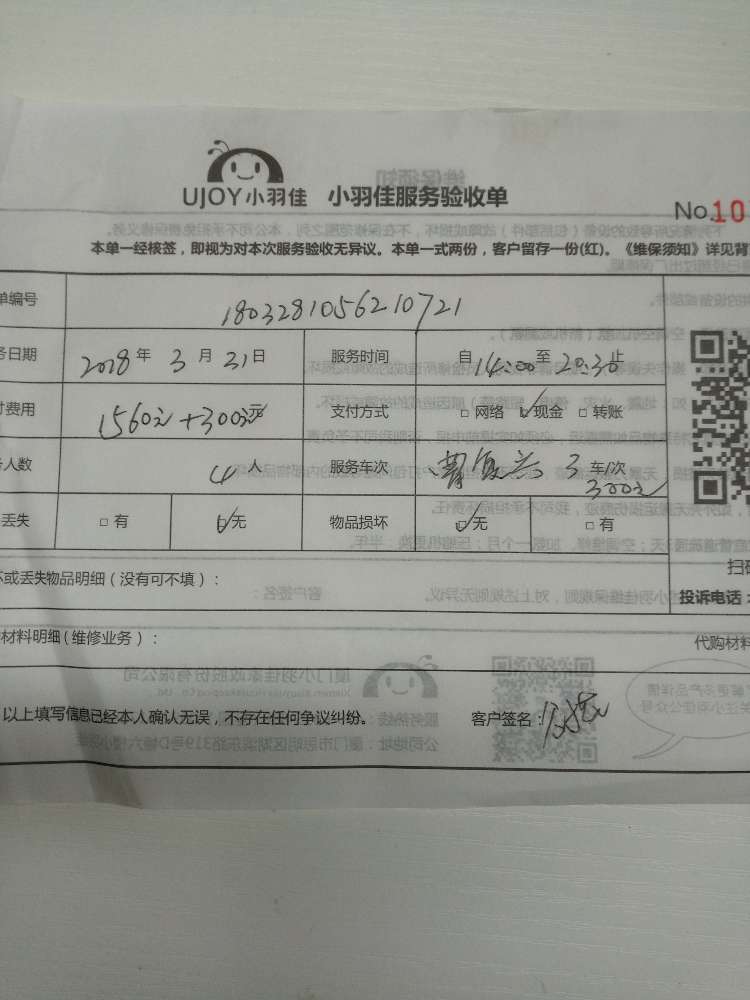 UJOY小羽佳 小羽佳服务验收单
No.10
本单一经核签，即视为对本次服务验收无异议。本单一式两份，客户留存一份(红)。《维保须知》详见背
单编号 1803281056210721
务日期 2018年 3月 31日 服务时间 自14:00至20:30止
付费用 1560元+300元 支付方式 □ 网络 ☑ 现金 □ 转账
务人数 4人 服务车次 3 车/次
300元
丢失 □ 有 ☑ 无 物品损坏 ☑ 无 □ 有
坏或丢失物品明细（没有可不填）：
扫码
投诉电话：
材料明细(维修业务)：
代购材料
以上填写信息已经本人确认无误，不存在任何争议纠纷。 客户签名：